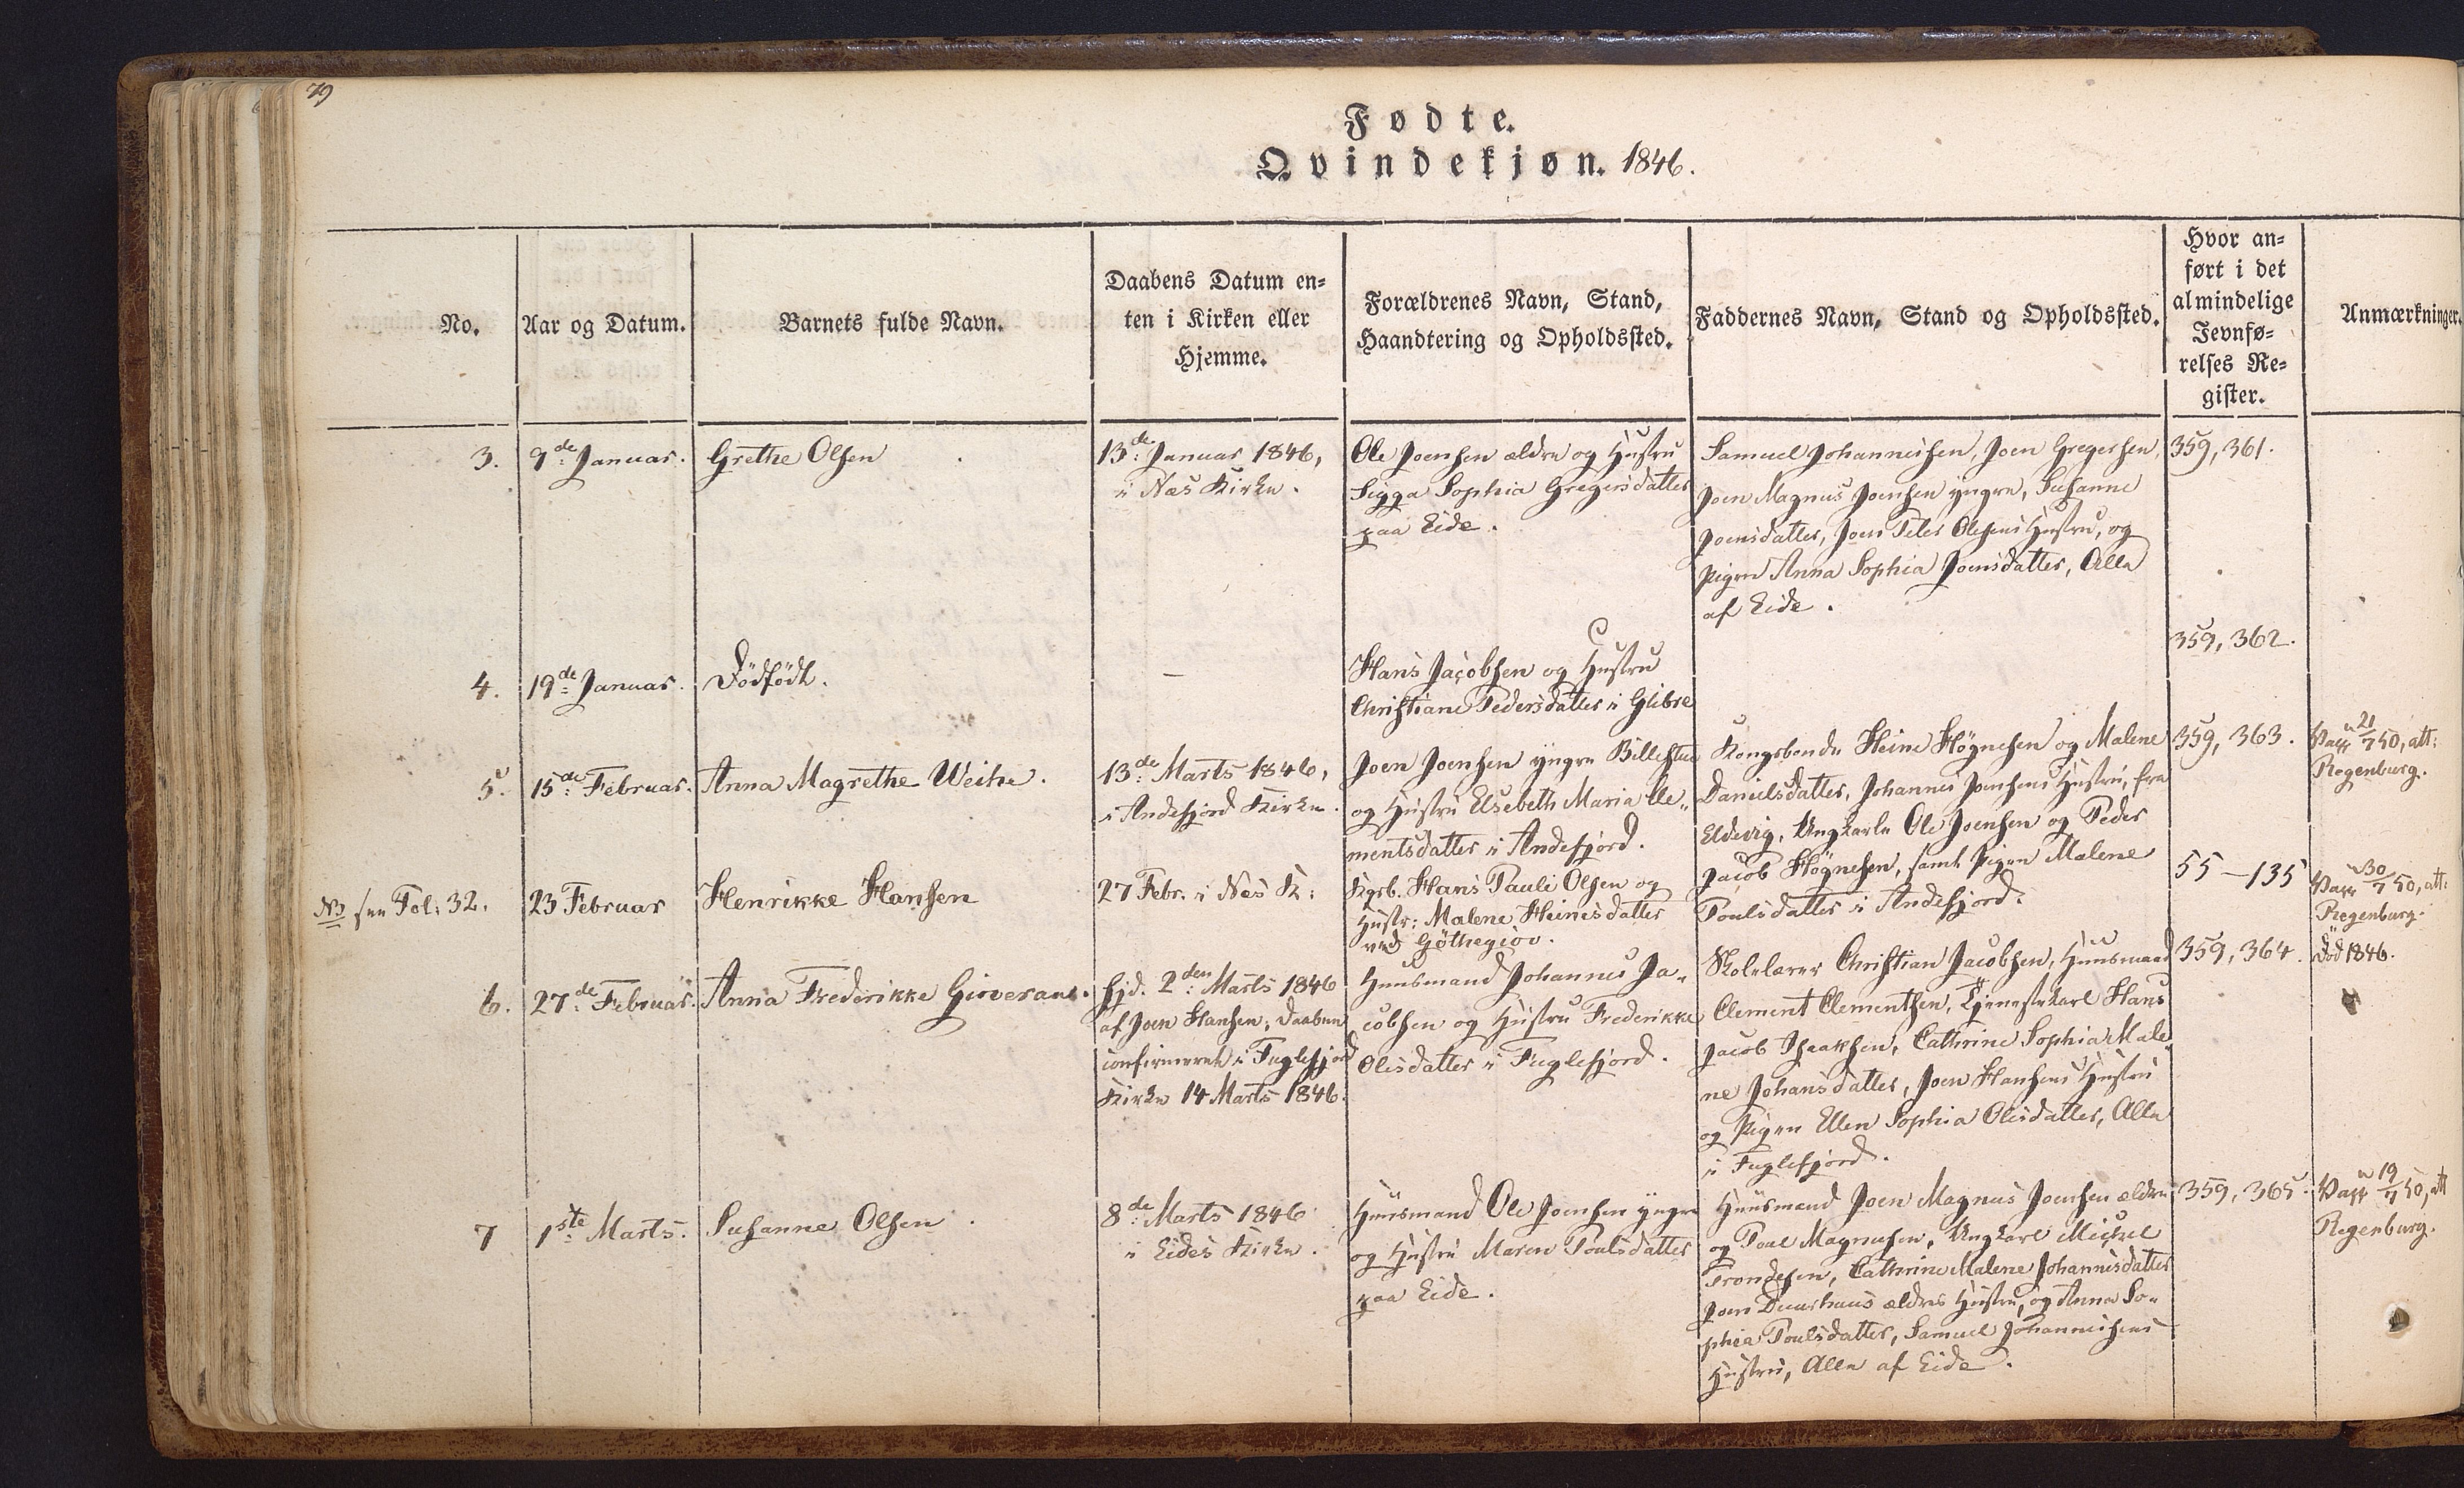 79
Fødte.
Qvindekjøn. 1846.
No.
Aar og Datum.
Barnets fulde Navn.
Daabens Datum en-
ten i Kirken eller
Hjemme.
Forældrenes Navn, Stand,
Haandtering og Opholdssted.
Faddernes Navn, Stand og Opholdssted.
Hvor an-
ført i det
almindelige
Jevnfø-
relses Re-
gister.
Anmærkninger.
3.
9de Januar.
Grethe Olsen
13de Januar 1846,
i Næs Kirke.
Ole Joensen ældre og Hustru
Sigga Sophia Gregersdatter
paa Eide.
Samuel Johannesen, Joen Gregersen,
Joen Magnus Joensen yngre, Susanne
Joensdatter, Joen Peter Olesens Hustru, og
Pigen Anna Sophia Joensdatter, Alle
af Eide.
359, 361.
4.
19de Januar.
Dødfødt.
—
Hans Jacobsen og Hustru
Christiane Pedersdatter i Glibre
359, 362.
5.
15de Februar.
Anna Magrethe Weihe.
13de Marts 1846,
i Andefjord Kirke.
Joen Joensen yngre
og Hustru Elsebeth Maria Cle-
mentsdatter i Andefjord.
Kongsbonde Heine Høgnesen og Malene
Danielsdatter, Johannes Joensens Hustru, fra
Eldevig, Ungkarle Ole Joensen og Peder
Jacob Høgnesen, samt Pigen Malene
Poulsdatter i Andefjord.
359, 363.
Vacc 21/7 50, att:
Regenburg.
NB see Fol: 32.
23 Februar
Henrikke Hansen
27 Febr. i Næs K:
Kgsb. Hans Pauli Olsen og
Hustr: Malene Heinesdatter
ved Göthegiov.
55 – 135
Vacc 30/7 50, att:
Regenburg.
6.
27de Februar.
Anna Frederikke Gioveraae.
Hjd. 2den Marts 1846
af Joen Hansen; Daaben
confirmeret i Fuglefjord
Kirke 14 Marts 1846.
Huusmand Johannes Ja-
cobsen og Hustru Frederikke
Olesdatter i Fuglefjord.
Skolelærer Christian Jacobsen, Huusmand
Clement Clementsen, Tjenestekarl Hans
Jacob Isaaksen, Cathrine Sophia Male-
ne Johansdatter, Joen Hansens Hustru
og Pigen Ellen Sophia Olesdatter, Alle
i Fuglefjord.
359, 364.
Død 1846.
7
1ste Marts.
Susanne Olsen.
8de Marts 1846
i Eides Kirke.
Huusmand Ole Joensen yngre
og Hustru Maren Poulsdatter
paa Eide.
Huusmænd Joen Magnus Joensen ældre
og Poul Magnusen, Ungkarl Michel
Trondesen, Cathrine Malene Johannesdatter
Joen Duurhuus ældres Hustru, og Anna So-
phia Poulsdatter, Samuel Johannesens
Hustru, Alle af Eide.
359, 365.
Vacc 19/7 50, att
Regenburg.